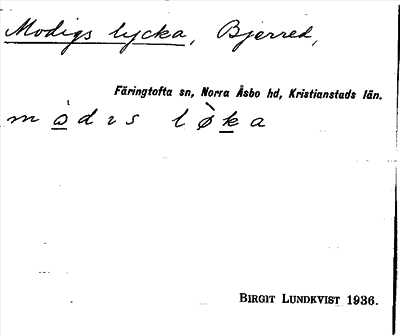 Modigs lycka, Bjerred,
Färingtofta sn, Norra Åsbo hd, Kristianstads län.
mòdıs lø̀ka
BIRGIT LUNDKVIST 1936.